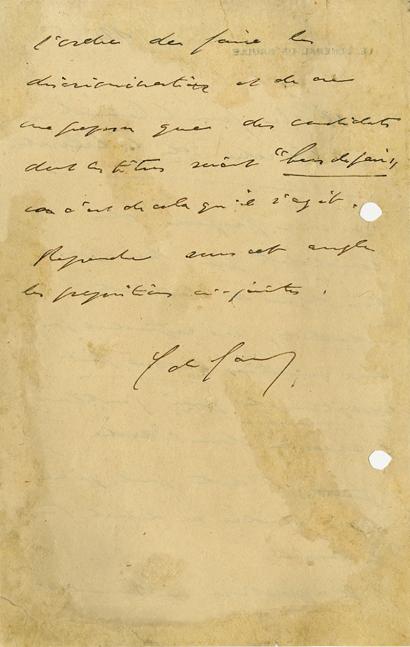 l'ordre de faire les
discriminations et de ne
me proposer que des candidats
dont les titres soient "hors de pair",
car c'est de cela qu'il s'agit.
Reprendre sous cet angle
les propositions ci-jointes.
C. de Gaulle